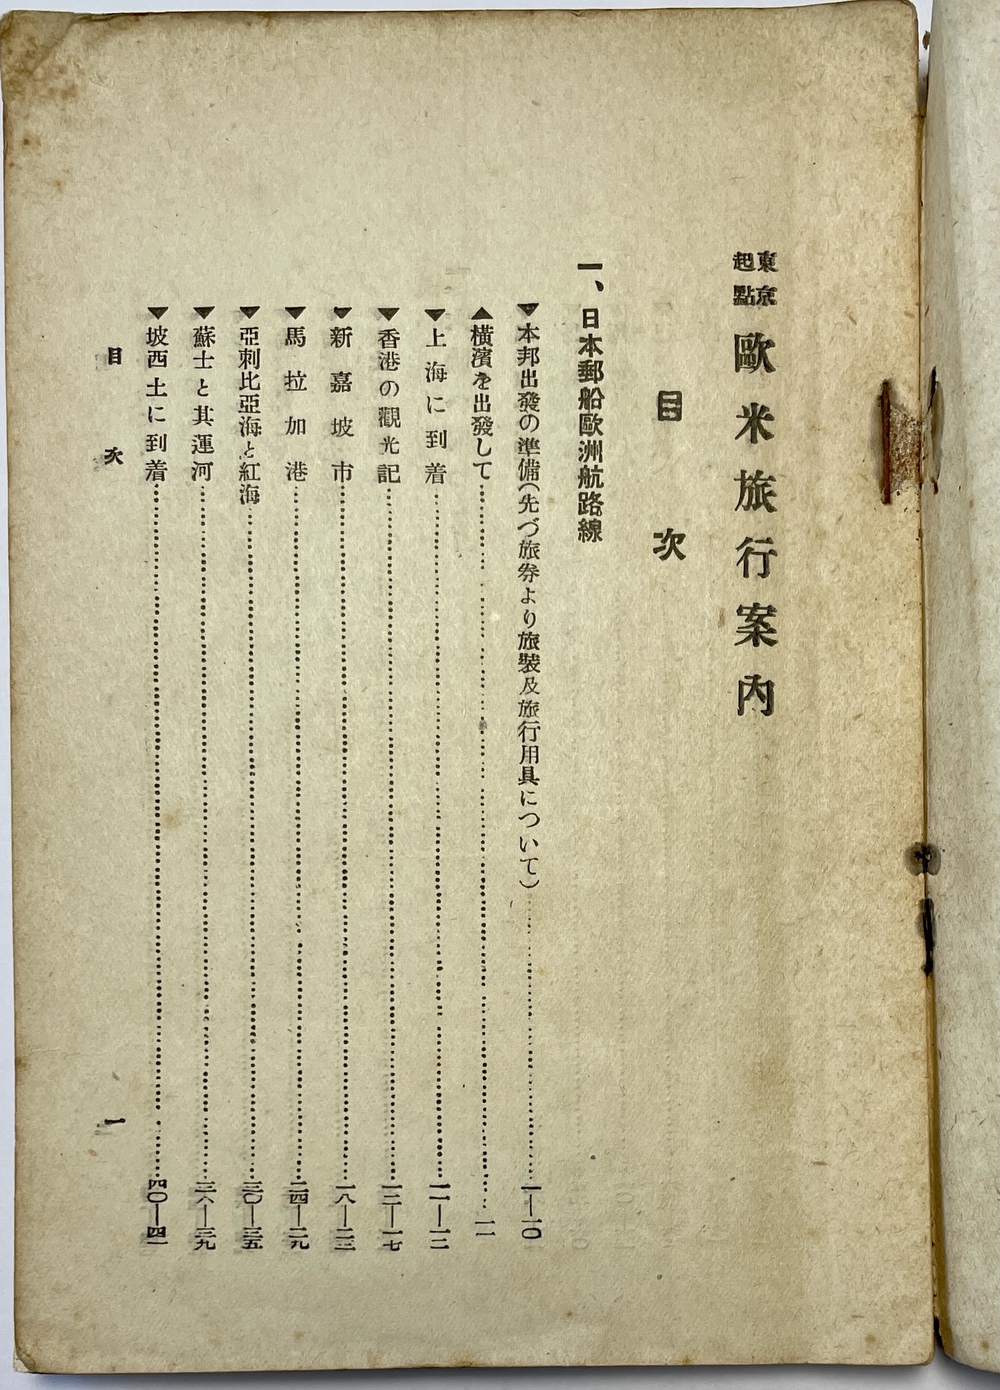 東京起點 歐米旅行案內
目次
一、日本郵船歐洲航路線
▼本邦出發の準備(先づ旅券より旅裝及旅行用具について)……一—一〇
▲橫濱を出發して……一一
▼上海に到着……一一—一二
▼香港の觀光記……一二—一七
▼新嘉坡市……一八—二三
▼馬拉加港……二四—二九
▼亞刺比亞海と紅海……三〇—三五
▼蘇士と其運河……三八—三九
▼坡西土に到着……四〇—四一
目次 一